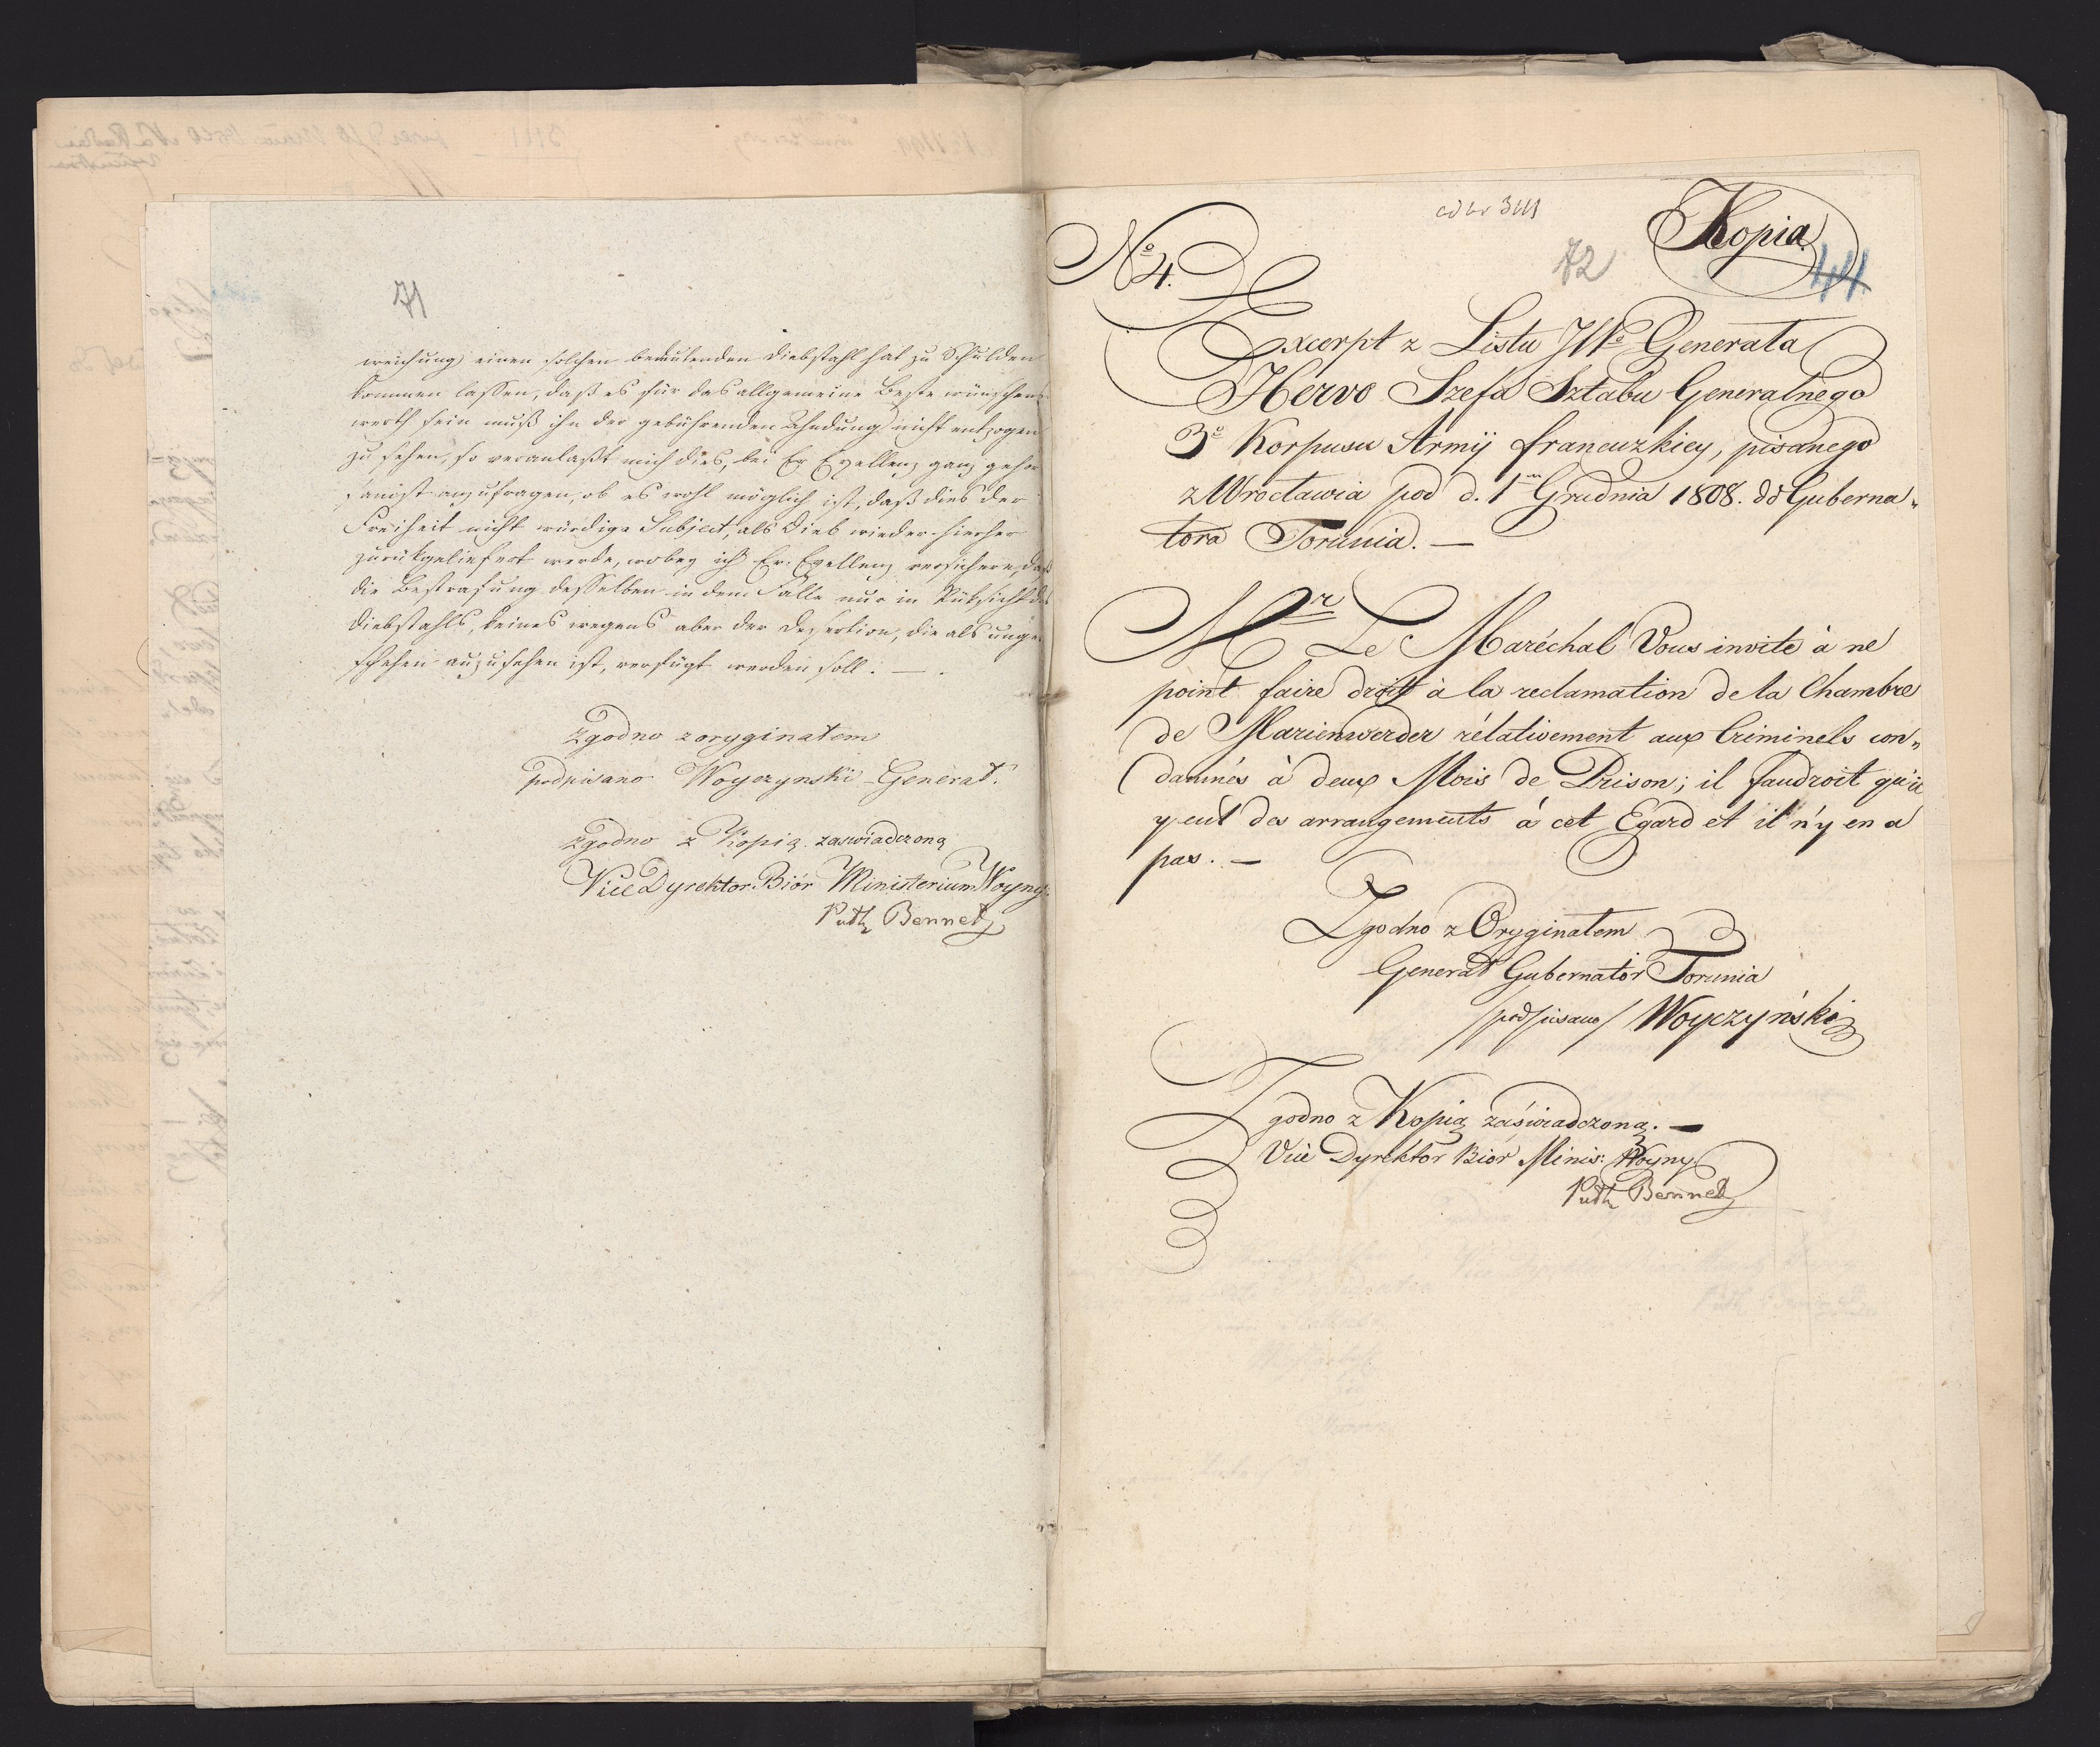 71
weichung) einen solchen bedeutenden Diebstahl hat zu Schulden
kommen lassen, daß es für das allgemeine Beste wünschens
werth sein muß ihn der gebührenden Ahndung nicht entzogen
zu sehen, so veranlaßt mich dies, bei Ew Exzellenz ganz gehor
samst anzufragen, ob es wohl möglich ist, daß dies der
Freiheit nicht würdige Subject, als Dieb wieder hierher
zurükgeliefert werde, wobey ich Ew. Exzellenz versichere, daß
die Bestrafung desselben in dem Falle nur in Rüksicht des
Diebstahls, keines weges aber der Desertion, die als unge
schehen anzusehen ist, verfügt werden soll. —
Zgodno z oryginałem
podpisano Woyczynski Generał.
zgodno z Kopią zaswiadczoną
Vice Dyrektor Biór Ministerium Woyny
Putk Bennet
Kopia
72
44
No 4.
Excerpt z Listu JWo Generała
Hervo Szefa Sztabu Generalnego
3o Korpusu Armij francuzkiey, pisanego
z Wrocławia pod d. 1m Grudnia 1808. do Guberna„
tora Torunia. —
Mr Le Maréchal Vous invite à ne
point faire droit à la reclamation de la Chambre
de Marienwerder rélativement aux Criminels con„
damnés à deux Mois de Prison; il faudroit qu'il
y eût des arrangements à cet Egard et il n'y en a
pas. —
Zgodno z Oryginałem
Generał Gubernator Torunia
/podpisano/ Woyczyński
Zgodno z Kopią zaświadczoną. —
Vice Dyrektor Biór Minis: Woyny
Putk Bennet